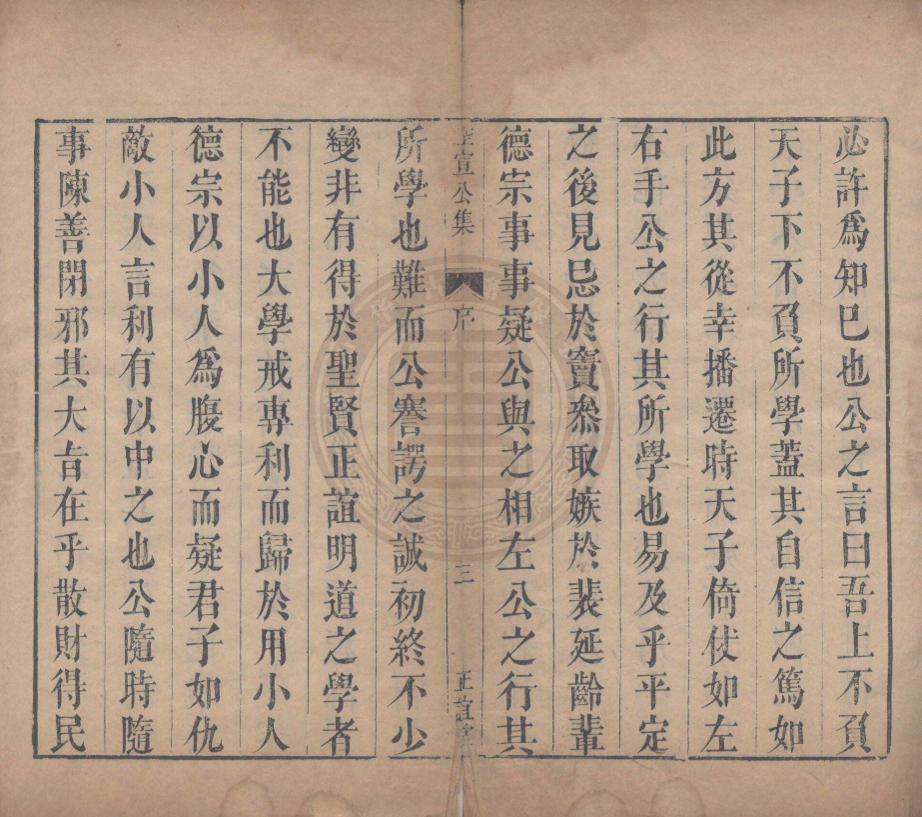 必許爲知巳也公之言曰吾上不負
天子下不負所學蓋其自信之篤如
此方其從幸播遷時天子倚仗如左
右手公之行其所學也易及乎平定
之後見忌於竇叅取嫉於裴延齡輩
德宗事事疑公與之相左公之行其
宣公集
序
三
正誼堂
所學也難而公謇諤之誠初終不少
變非有得於聖賢正誼明道之學者
不能也大學戒專利而歸於用小人
德宗以小人爲腹心而疑君子如仇
敵小人言利有以中之也公隨時隨
事陳善閉邪其大旨在乎散財得民